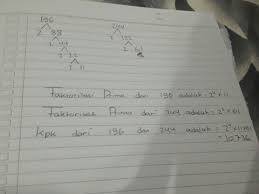 176 244
2 88 2 122
2 44 2 61
2 22
2 11
Faktorisasi Prima dari 176 adalah = 2⁴ × 11
Faktorisasi Prima dari 244 adalah = 2² × 61
kpk dari 176 dan 244 adalah = 2⁴ × 11 × 61
= 10.736